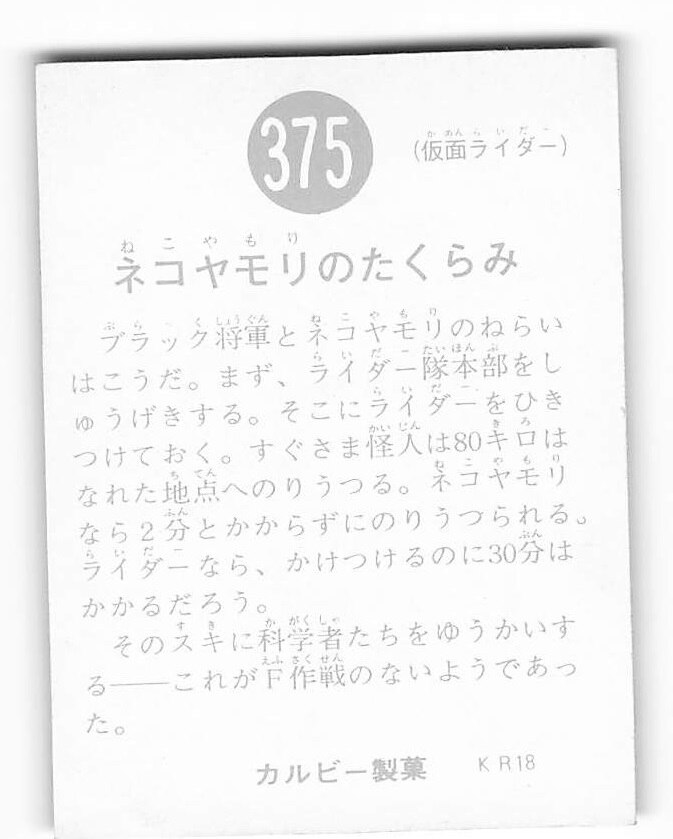 375
(仮面ライダー)
ネコヤモリのたくらみ
ブラック将軍とネコヤモリのねらい
はこうだ。まず、ライダー隊本部をし
ゅうげきする。そこにライダーをひき
つけておく。すぐさま怪人は80キロは
なれた地点へのりうつる。ネコヤモリ
なら2分とかからずにのりうつられる。
ライダーなら、かけつけるのに30分は
かかるだろう。
そのスキに科学者たちをゆうかいす
る——これがF作戦のないようであっ
た。
カルビー製菓 KR18